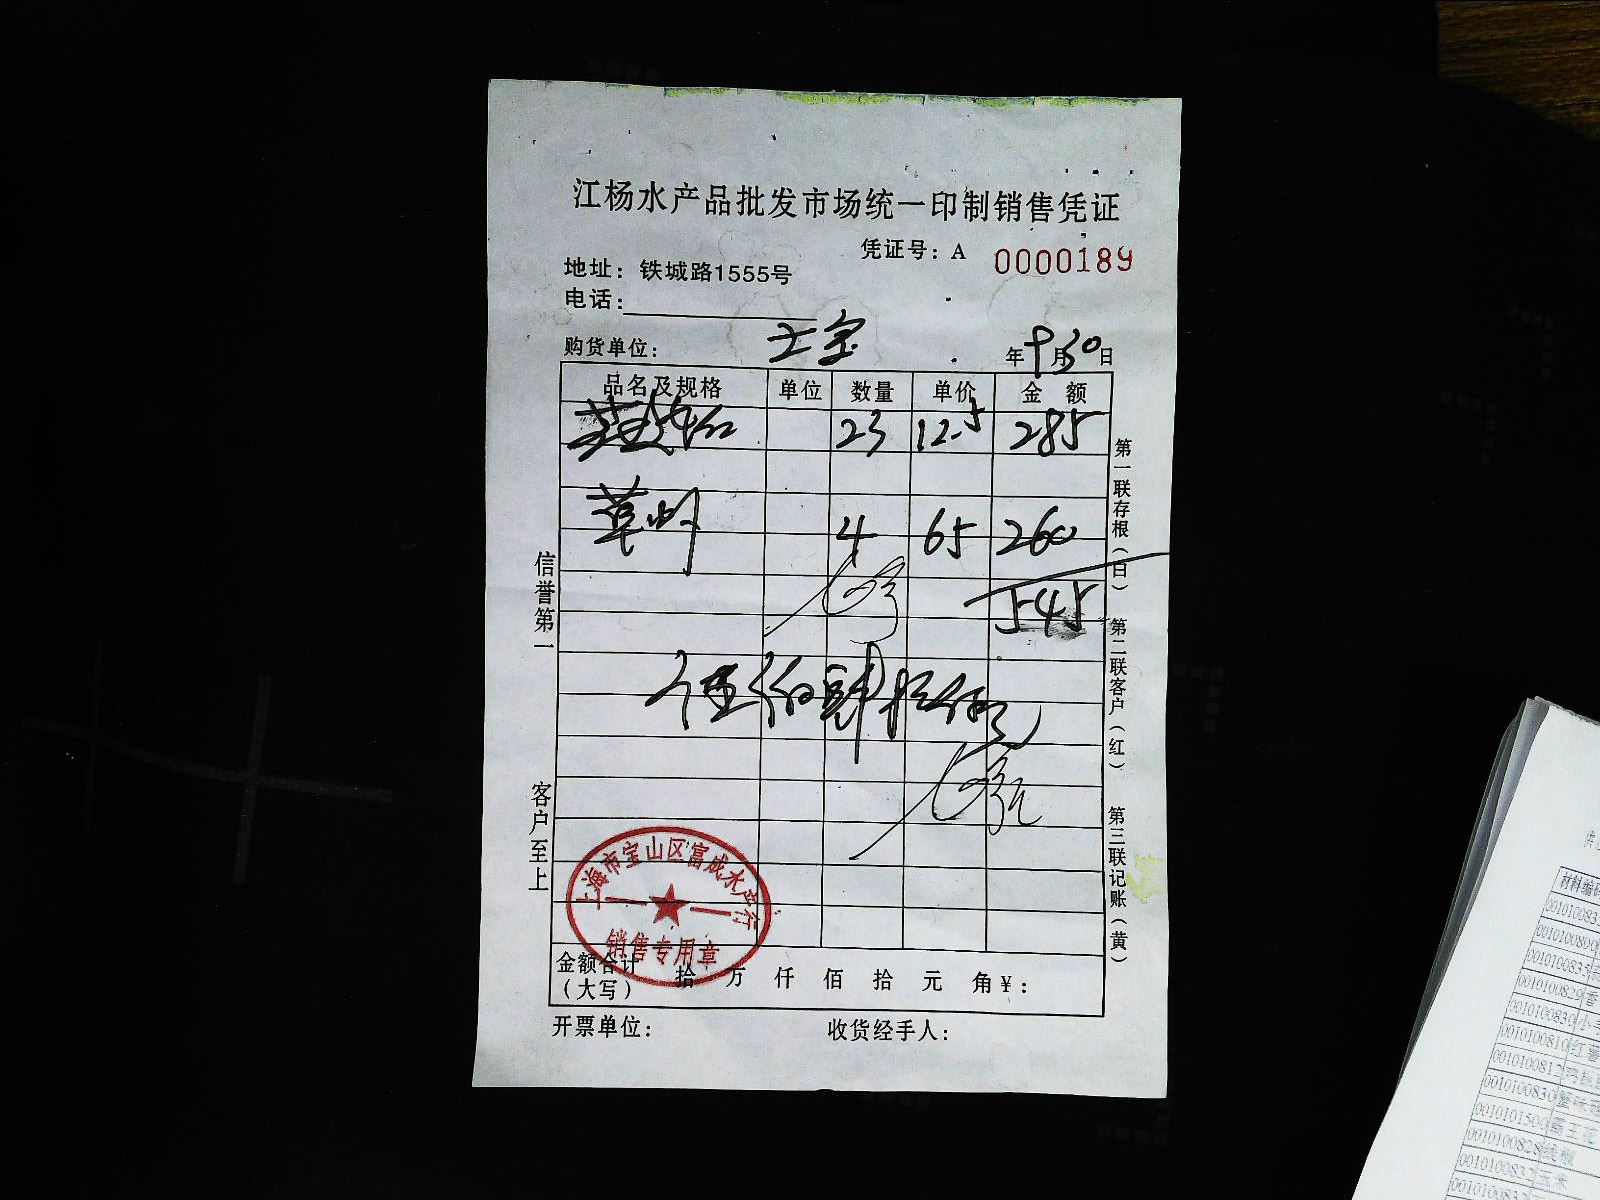 江杨水产品批发市场统一印制销售凭证
凭证号：A 0000189
地址：铁城路1555号
电话：
购货单位： 士宝 年9月30日
品名及规格 单位 数量 单价 金额
23 12.5 285
草虾 4 65 260
545
伍佰肆拾伍元
信誉第一
客户至上
第一联存根（白）
第二联客户（红）
第三联记账（黄）
上海市宝山区富成水产行
销售专用章
金额合计
（大写） 拾 万 仟 佰 拾 元 角¥：
开票单位： 收货经手人：
材料编码
001010083
001010080
001010083
001010082
001010083 小
001010081 红薯
001010081
001010083
001010150
001010082
001010083 玉米